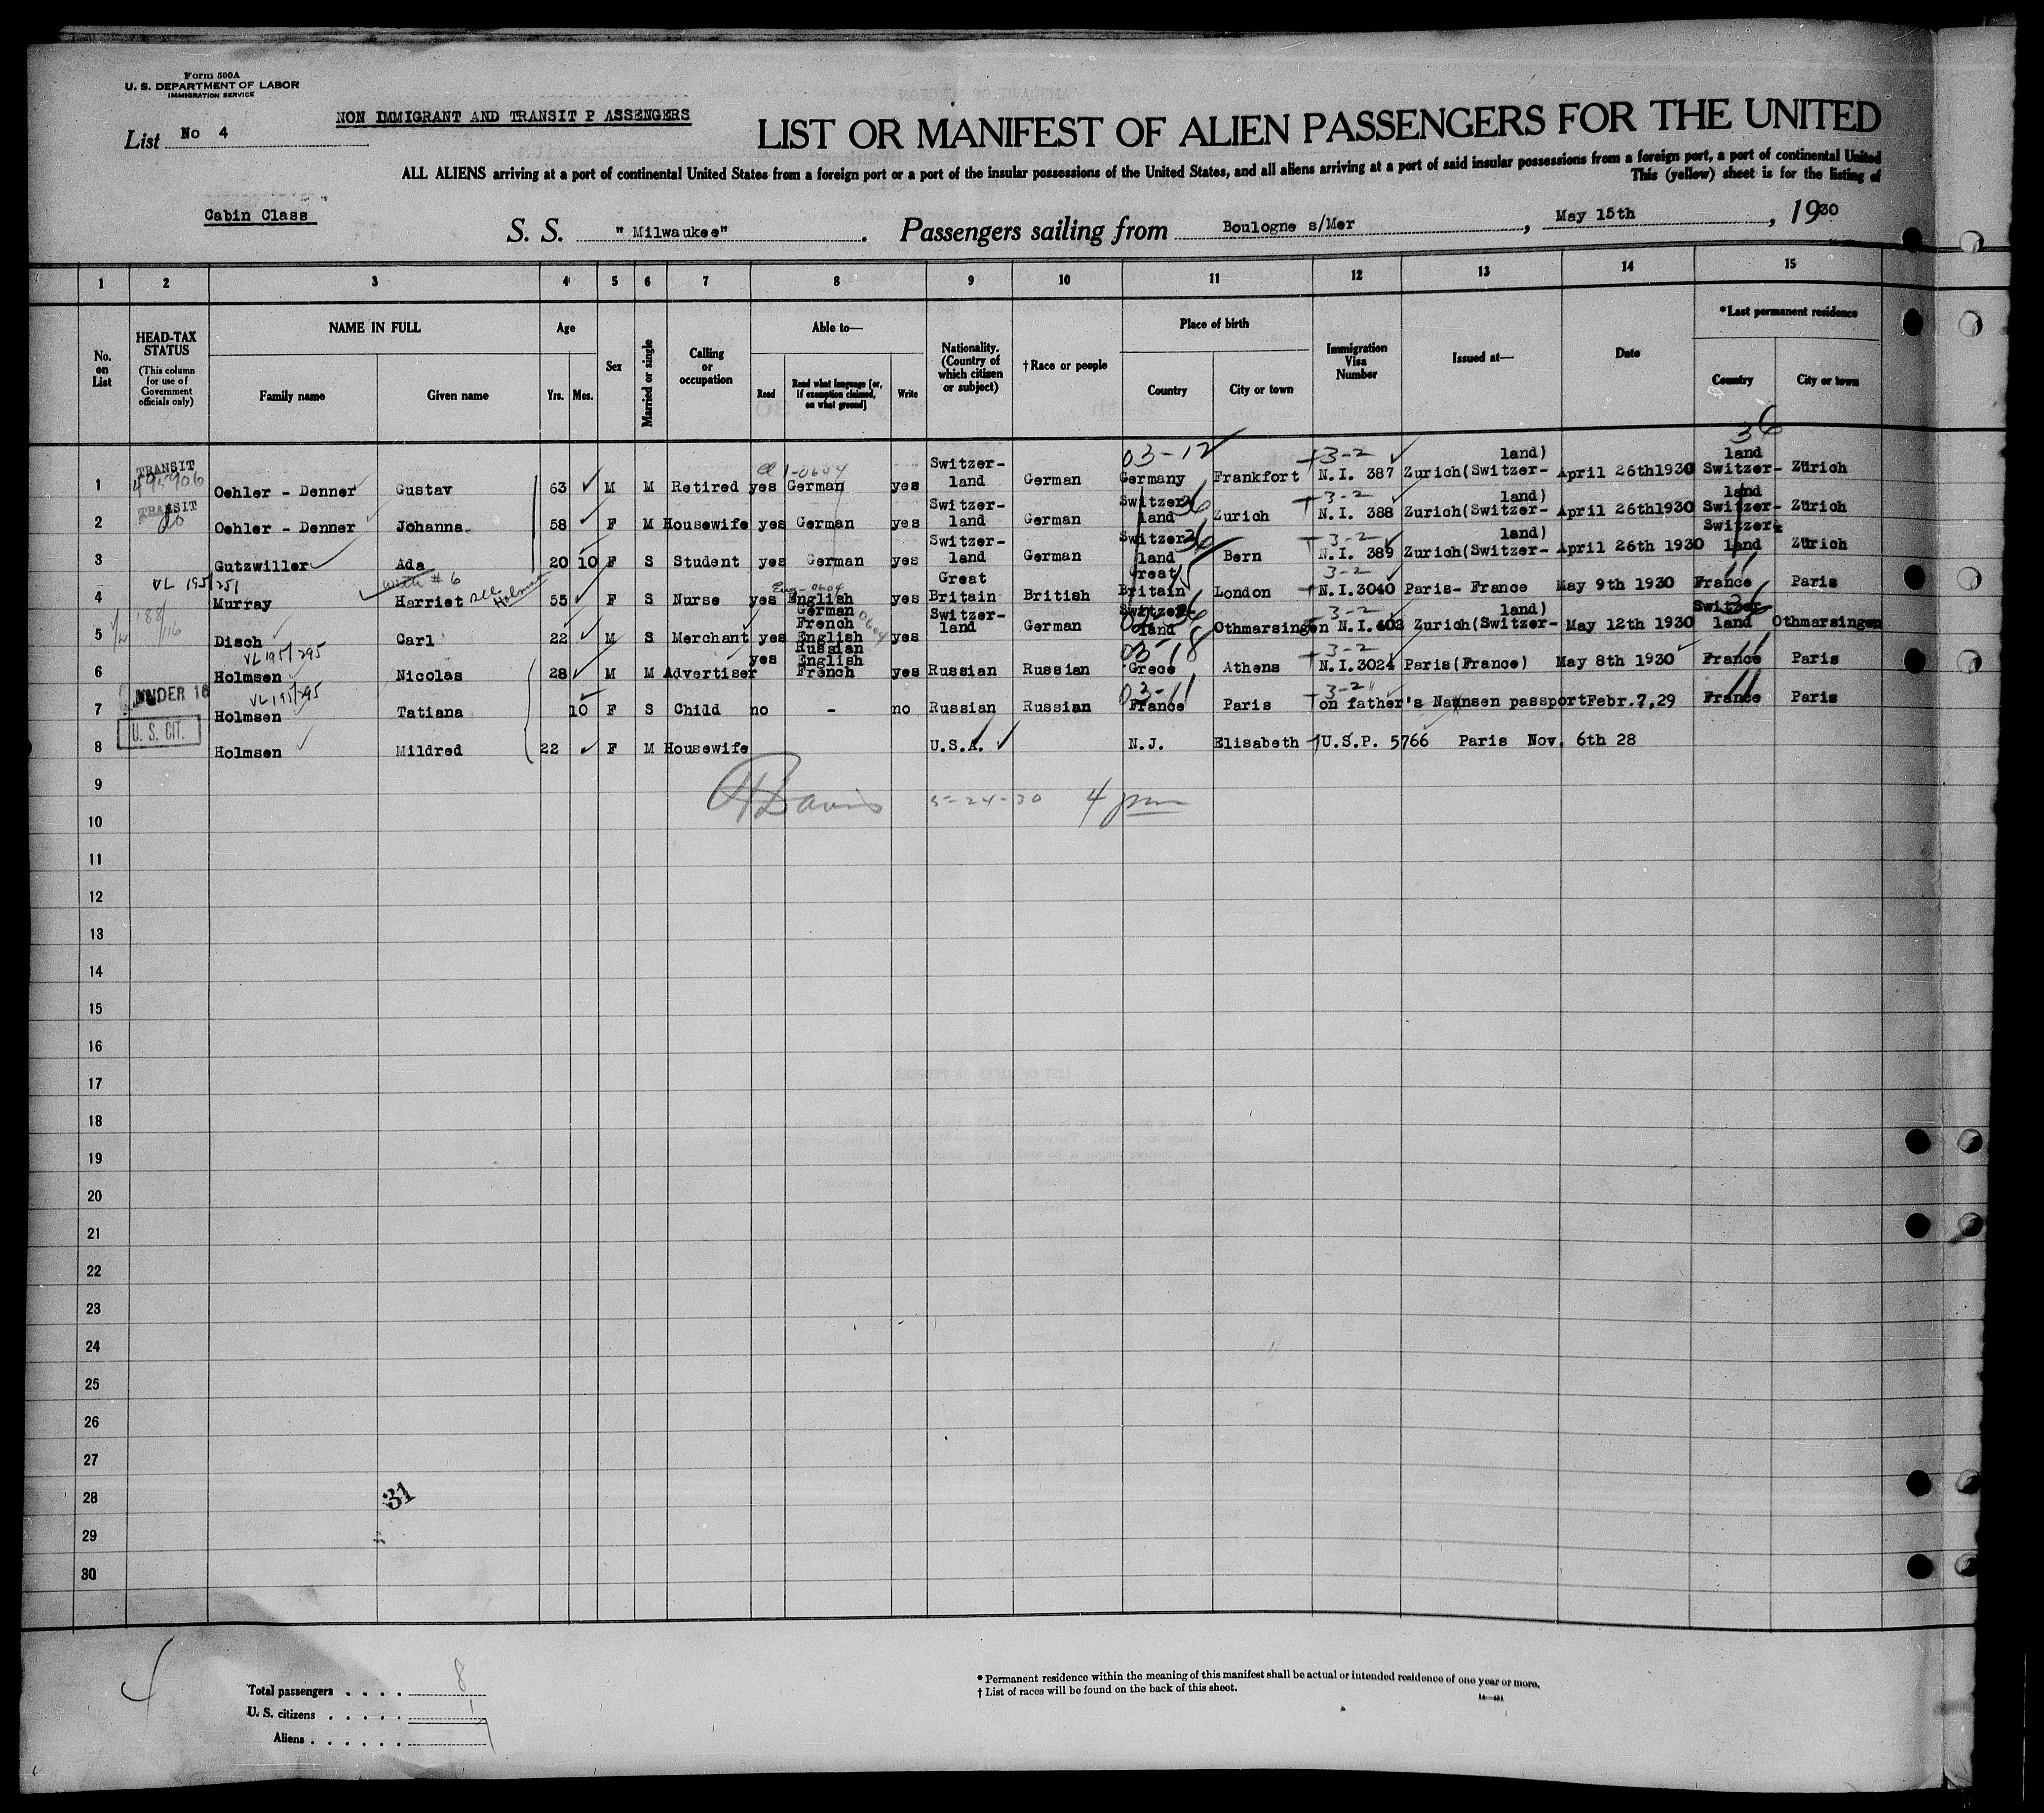 Form 500A
U. S. DEPARTMENT OF LABOR
IMMIGRATION SERVICE
List No 4
NON IMMIGRANT AND TRANSIT P ASSENGERS
LIST OR MANIFEST OF ALIEN PASSENGERS FOR THE UNITED
ALL ALIENS arriving at a port of continental United States from a foreign port or a port of the insular possessions of the United States, and all aliens arriving at a port of said insular possessions from a foreign port, a port of continental United
This (yellow) sheet is for the listing of
Cabin Class
S. S. "Milwaukee". Passengers sailing from Boulogne s/Mer, May 15th, 1930
1 2 3 4 5 6 7 8 9 10 11 12 13 14 15
No. on List
HEAD-TAX STATUS
(This column for use of Government officials only)
NAME IN FULL
Family name Given name
Age
Yrs. Mos.
Sex
Married or single
Calling or occupation
Able to—
Read
Read what language [or, if exemption claimed, on what ground]
Write
Nationality. (Country of which citizen or subject)
†Race or people
Place of birth
Country City or town
Immigration Visa Number
Issued at—
Date
*Last permanent residence
Country City or town
36
1 TRANSIT 495906 Oehler - Denner Gustav 63 M M Retired yes German 1-0604 yes Switzer-land German 03-12 Germany Frankfort 3-2 N.I. 387 Zurich(Switzer-land) April 26th1930 Switzer-land Zürich
2 TRANSIT do Oehler - Denner Johanna 58 F M Housewife yes German yes Switzer-land German Switzer-land 36 Zurich 3-2 N.I. 388 Zurich(Switzer-land) April 26th1930 Switzer-land Zürich
3 Gutzwiller Ada 20 10 F S Student yes German yes Switzer-land German Switzer-land 36 Bern 3-2 N.I. 389 Zurich(Switzer-land) April 26th 1930 Switzer-land Zürich
4 VL 195/251 Murray Harriet with # 6 see Holmsen 55 F S Nurse yes English Eng-0604 yes Great Britain British Great Britain 15 London 3-2 N.I.3040 Paris- France May 9th 1930 France 11 Paris
5 188/116 Disch Carl 22 M S Merchant yes German French English 0604 yes Switzer-land German Switzer-land 36 Othmarsingen 3-2 N.I. 402 Zurich(Switzer-land) May 12th 1930 Switzer-land 36 Othmarsingen
6 VL195/295 Holmsen Nicolas 28 M M Advertiser yes Russian English French yes Russian Russian 03-18 Grece Athens 3-2 N.I.3024 Paris(France) May 8th 1930 France 11 Paris
7 UNDER 16 VL195/295 Holmsen Tatiana 10 F S Child no - no Russian Russian 03-11 France Paris 3-2 on father's Nansen passport Febr.7,29 France 11 Paris
8 U. S. CIT. Holmsen Mildred 22 F M Housewife U.S.A. N.J. Elisabeth U.S.P. 5766 Paris Nov. 6th 28
9
Davis 5-24-30 4 pm
10
11
12
13
14
15
16
17
18
19
20
21
22
23
24
25
26
27
28 31
29
30
Total passengers . . . . 8
U. S. citizens . . . . . 1
Aliens . . . . . . 7
* Permanent residence within the meaning of this manifest shall be actual or intended residence of one year or more.
† List of races will be found on the back of this sheet.